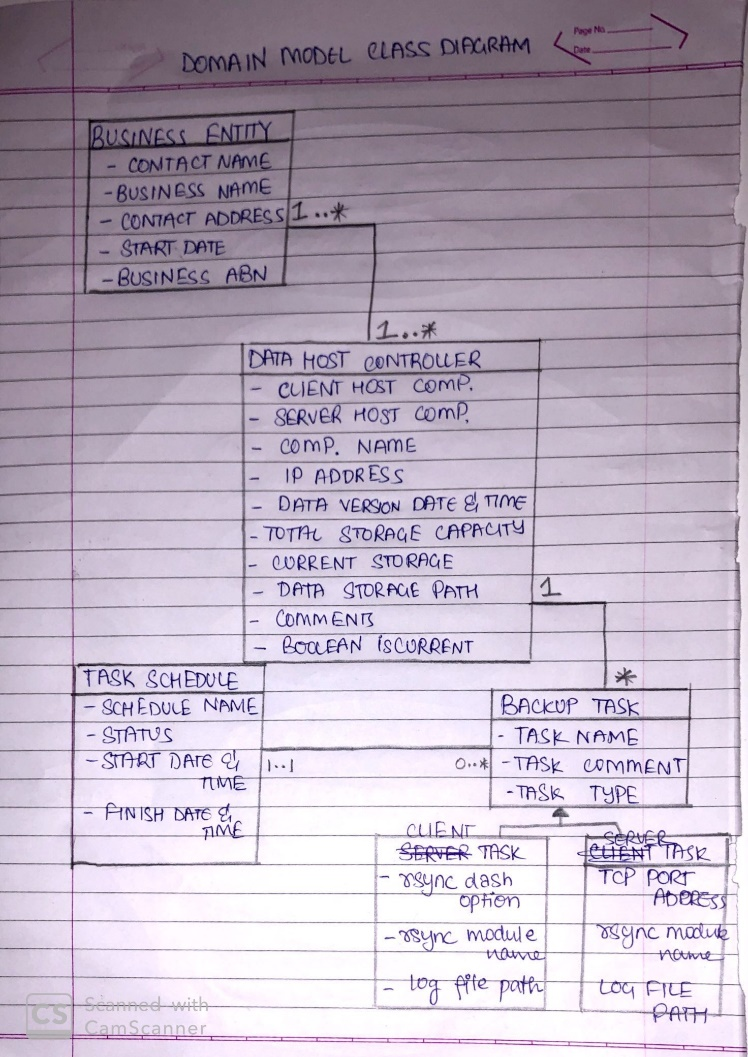 DOMAIN MODEL CLASS DIAGRAM
Page No.
Date
BUSINESS ENTITY
- CONTACT NAME
- BUSINESS NAME
- CONTACT ADDRESS
1..*
- START DATE
- BUSINESS ABN
1..*
DATA HOST CONTROLLER
- CLIENT HOST COMP.
- SERVER HOST COMP.
- COMP. NAME
- IP ADDRESS
- DATA VERSION DATE & TIME
- TOTAL STORAGE CAPACITY
- CURRENT STORAGE
- DATA STORAGE PATH
1
- COMMENTS
- BOOLEAN ISCURRENT
*
TASK SCHEDULE
- SCHEDULE NAME
- STATUS
- START DATE &
TIME
- FINISH DATE &
TIME
1..1
0..*
BACKUP TASK
- TASK NAME
- TASK COMMENT
- TASK TYPE
CLIENT
SERVER TASK
- rsync dash
option
- rsync module
name
- log file path
SERVER
CLIENT TASK
TCP PORT
ADDRESS
rsync module
name
LOG FILE
PATH
CS Scanned with
CamScanner